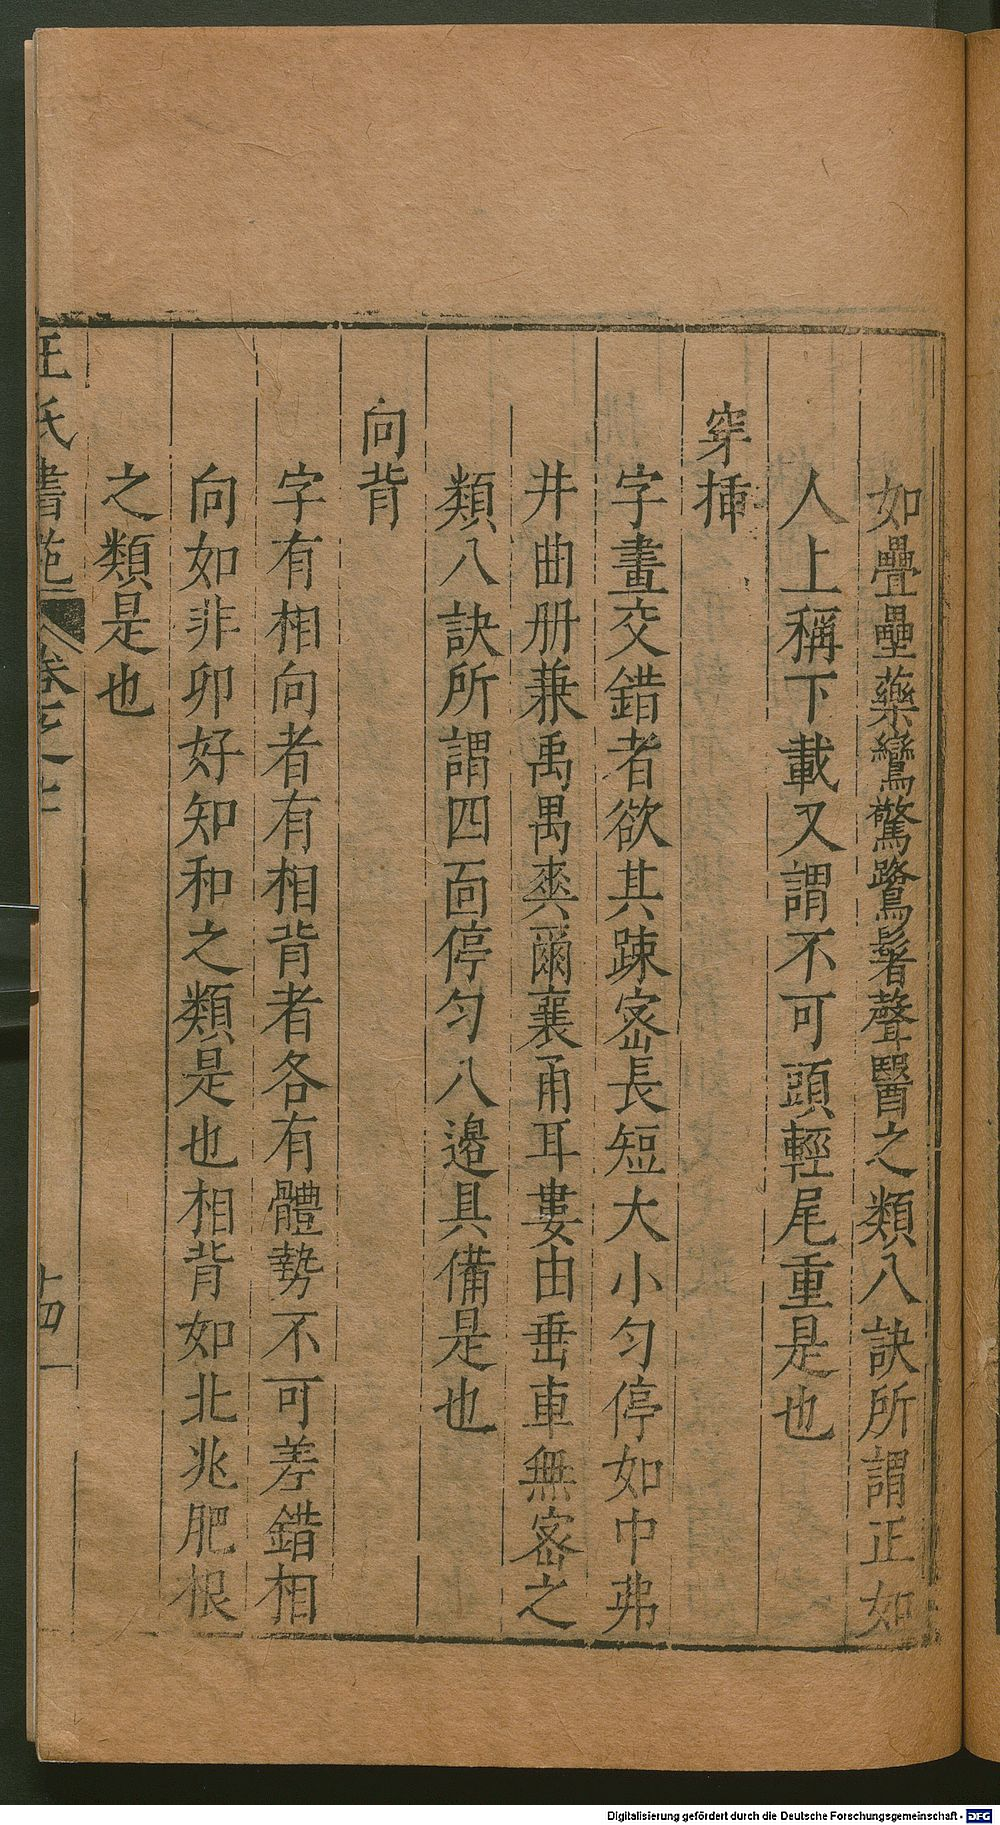 如疊壘藥鸞驚鷺鬐聲醫之類八訣所謂正如
人上稱下載又謂不可頭輕尾重是也
穿插
字畫交錯者欲其疎宻長短大小匀停如中弗
井曲册兼禹禺爽爾襄甬耳婁由垂車無宻之
類八訣所謂四面停匀八邉具備是也
向背
字有相向者有相背者各有體勢不可差錯相
向如非卯好知和之類是也相背如北兆肥根
之類是也
王氏書苑
卷之七
十四
Digitalisierung gefördert durch die Deutsche Forschungsgemeinschaft - DFG